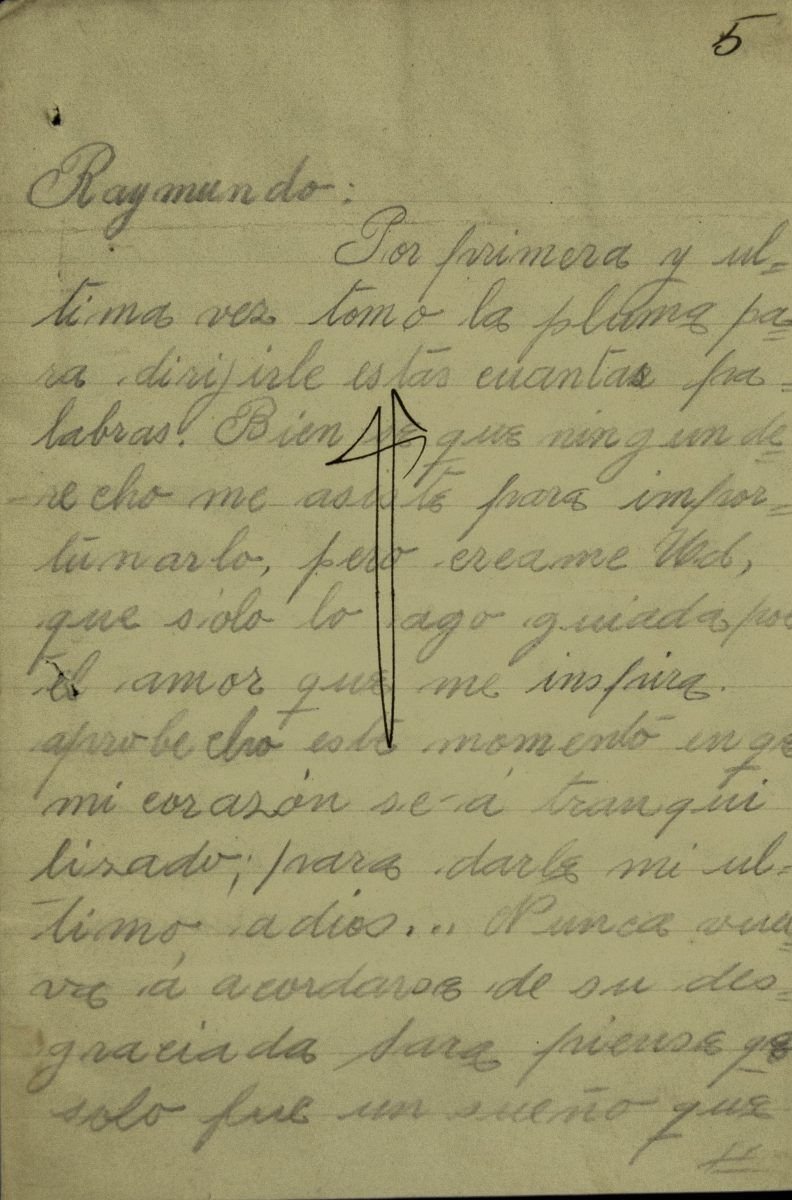 5
Raymundo:
Por primera y ul=
tima vez tomo la pluma pa=
ra dirijirle estas cuantas pa=
labras. Bien se que ningun de=
recho me asiste para impor=
tunarlo, pero creame Ud,
que sólo lo ago guiada por
el amor que me inspira.
aprobecho este momento en qe
mi corazón se á tranqui
lizado; para darle mi ul=
timo adios... Nunca vuel=
va á acordarse de su des=
graciada Sara piense qe
solo fue un sueño que